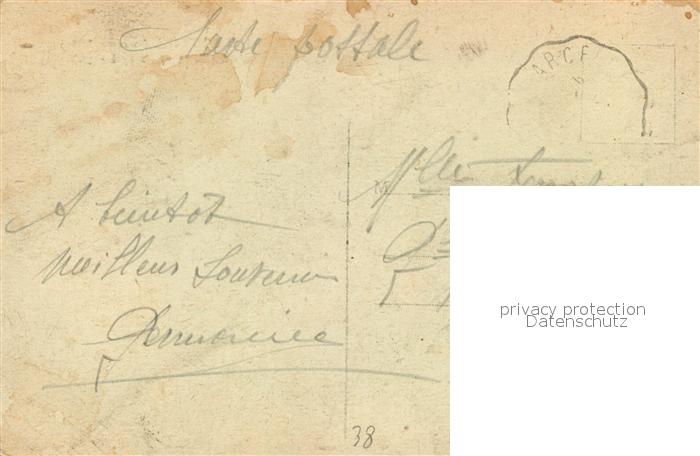 Carte postale
A bientot
Meilleur Souvenir
Germaine
Mlle
38
privacy protection
Datenschutz